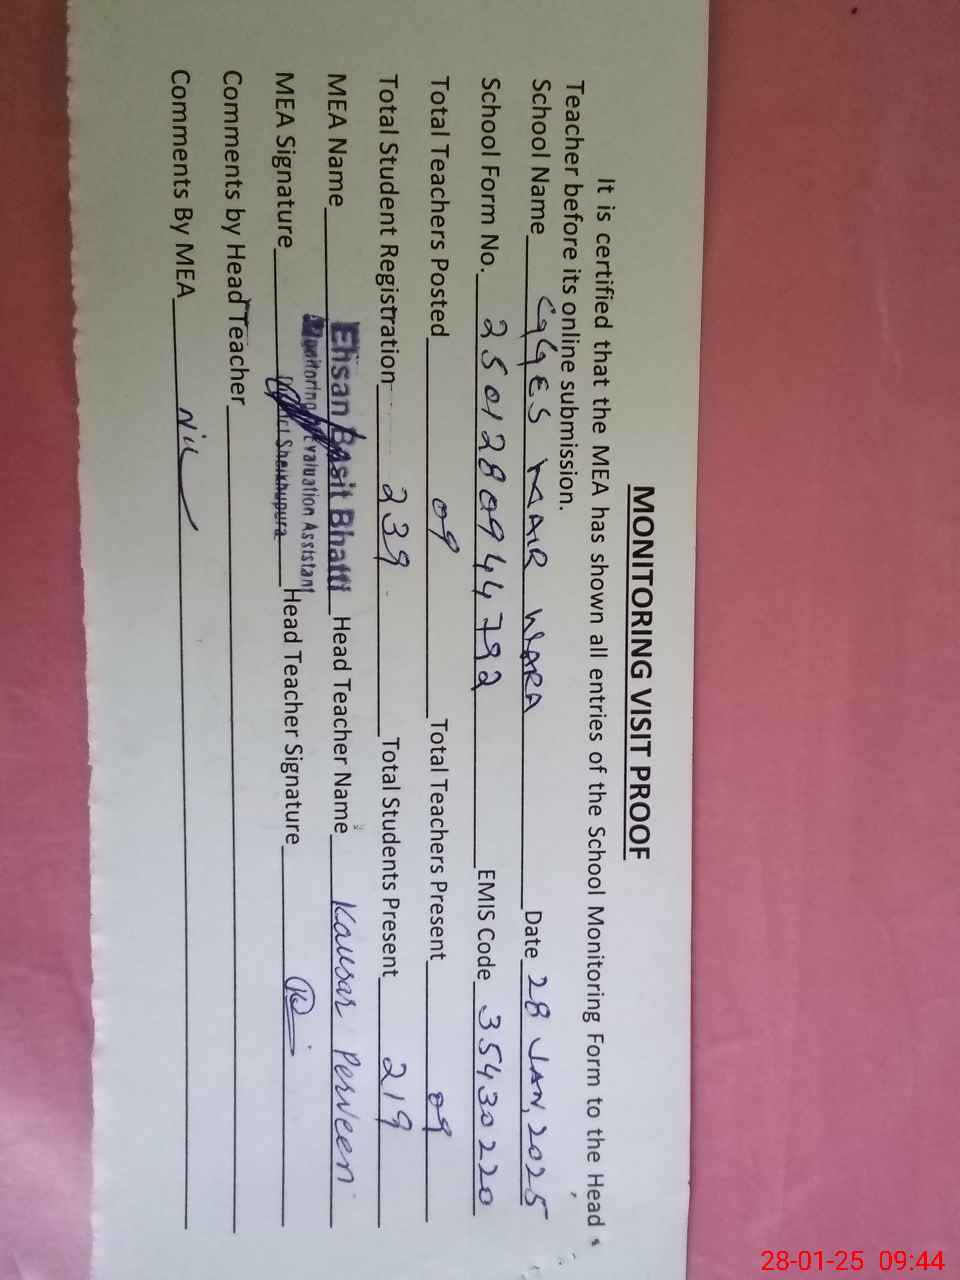 MONITORING VISIT PROOF
It is certified that the MEA has shown all entries of the School Monitoring Form to the Head
Teacher before its online submission.
School Name GGES MAIR WARA Date 28 JAN, 2025
School Form No. 2501280944792 EMIS Code 35430220
Total Teachers Posted 09 Total Teachers Present 09
Total Student Registration 239 Total Students Present 219
MEA Name Ehsan Basit Bhatti Head Teacher Name Kausar Perveen
Monitoring Evaluation Assistant
MEA Signature District Sheikhupura Head Teacher Signature
Comments by Head Teacher
Comments By MEA Nil
28-01-25 09:44